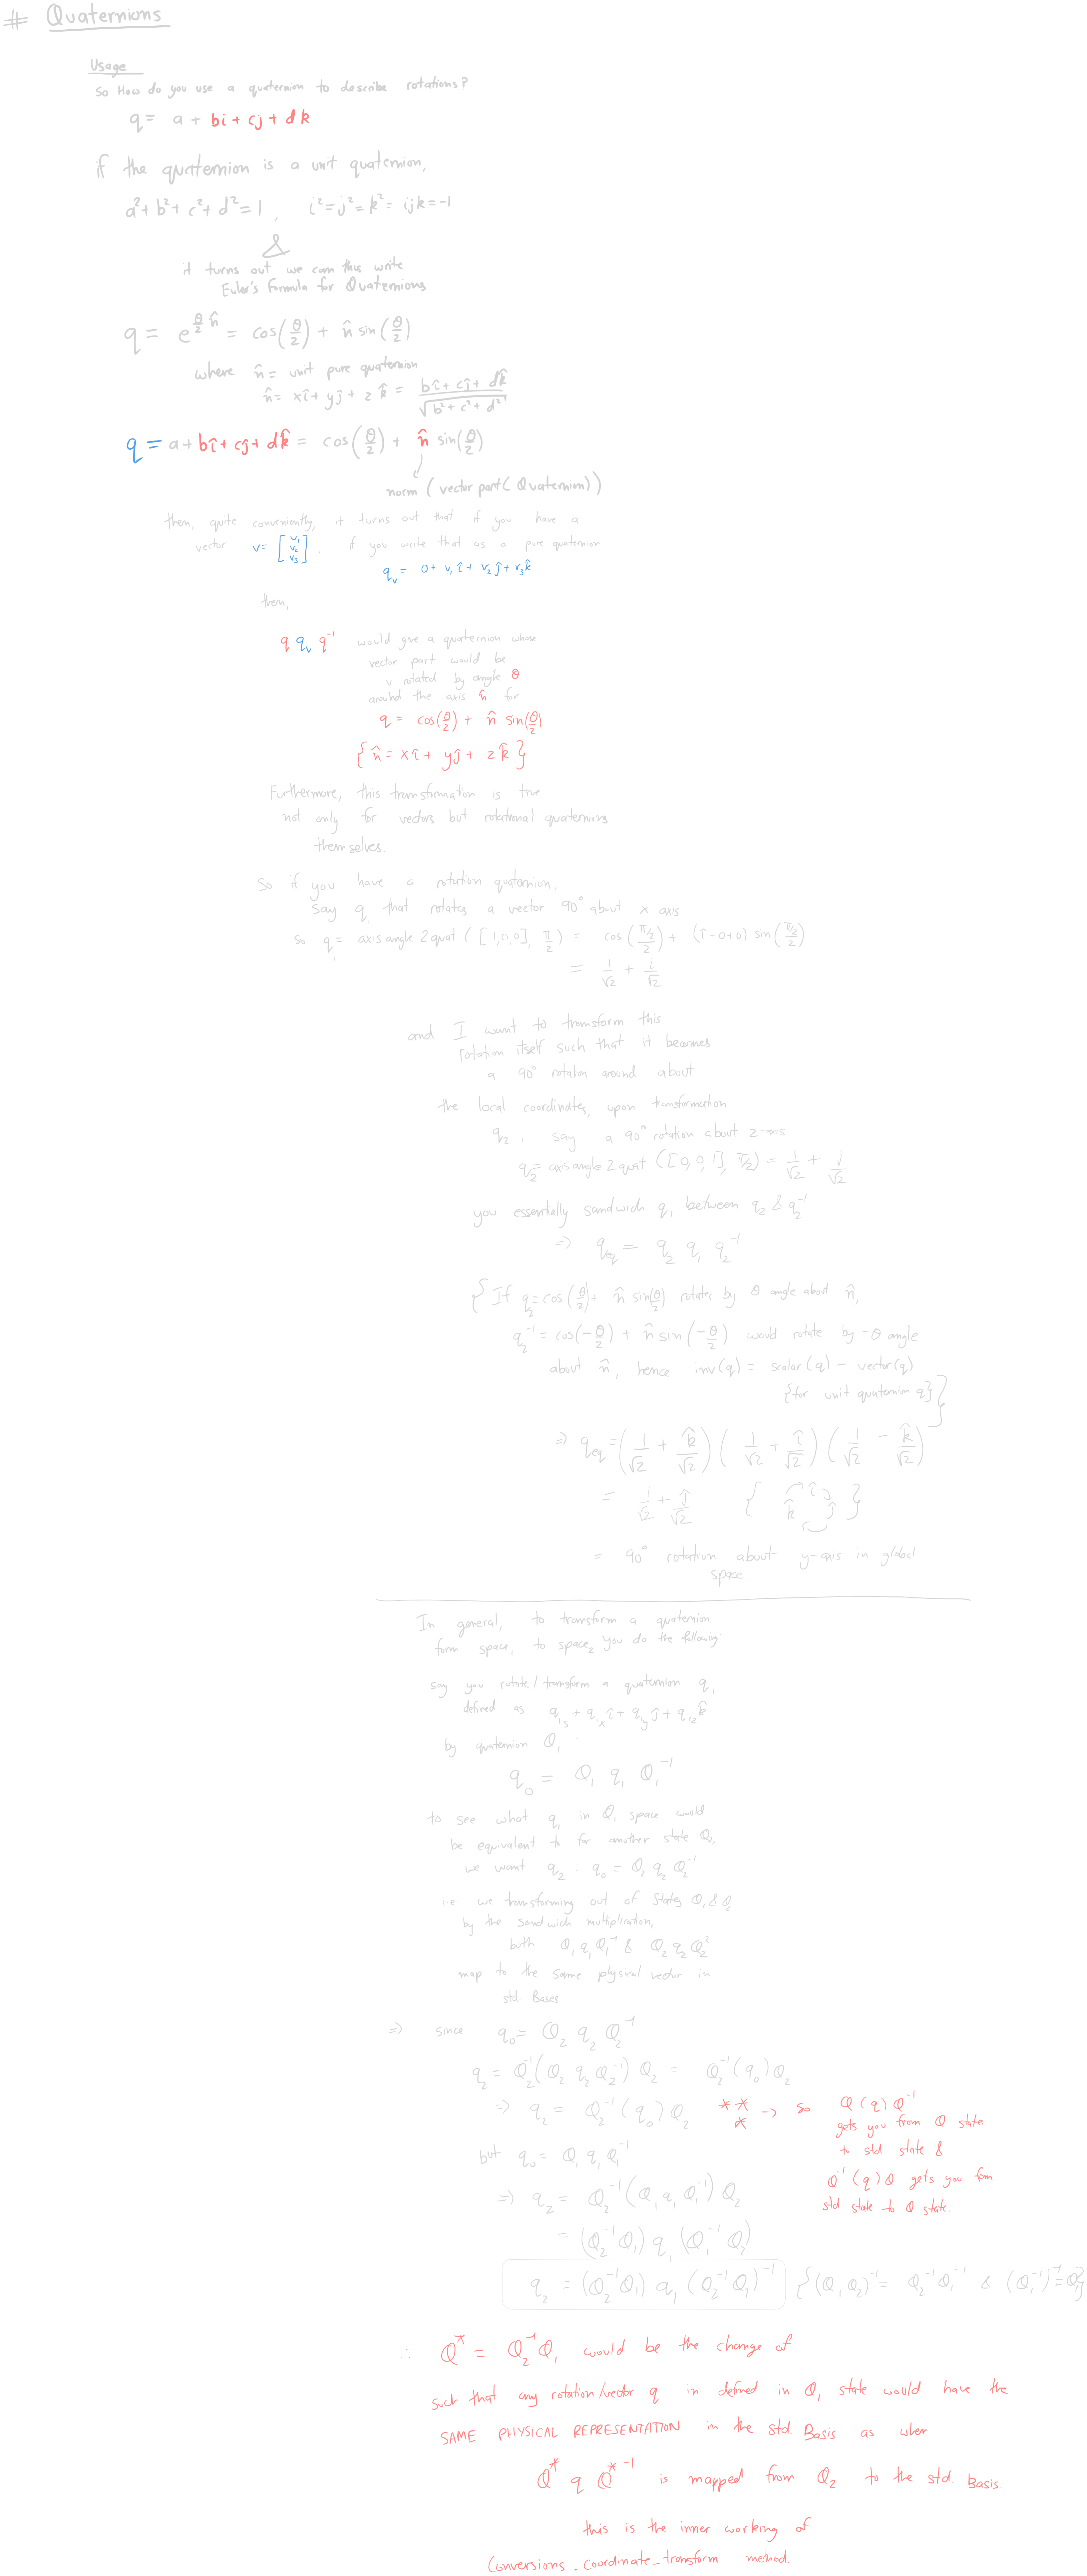 # Quaternions
Usage
So How do you use a quaternion to describe rotations?
q = a + bi + cj + dk
if the quaternion is a unit quaternion,
a² + b² + c² + d² = 1 , i² = j² = k² = ijk = -1
&
it turns out we can thus write
Euler's Formula for Quaternions
q = e^(θ/2 n̂) = cos(θ/2) + n̂ sin(θ/2)
where n̂ = unit pure quaternion
n̂ = xî + yĵ + zk̂ = (bî + cĵ + dk̂)/√(b² + c² + d²)
q = a + bî + cĵ + dk̂ = cos(θ/2) + n̂ sin(θ/2)
norm (vector part (Quaternion))
then, quite conveniently, it turns out that if you have a
vector v = [v₁ v₂ v₃] . if you write that as a pure quaternion
q_v = 0 + v₁î + v₂ĵ + v₃k̂
then,
q q_v q⁻¹ would give a quaternion whose
vector part would be
v rotated by angle θ
around the axis n̂ for
q = cos(θ/2) + n̂ sin(θ/2)
{n̂ = xî + yĵ + zk̂}
Furthermore, this transformation is true
not only for vectors but rotational quaternions
themselves.
So if you have a rotation quaternion,
say q₁ that rotates a vector 90° about x axis
so q₁ = axisangle2quat ([1,0,0], π/2) = cos((π/2)/2) + (î+0+0) sin((π/2)/2)
= 1/√2 + i/√2
and I want to transform this
rotation itself such that it becomes
a 90° rotation around about
the local coordinates, upon transformation
q₂, say a 90° rotation about z-axis
q₂ = axisangle2quat ([0,0,1], π/2) = 1/√2 + j/√2
you essentially sandwich q₁ between q₂ & q₂⁻¹
=> q_eq = q₂ q₁ q₂⁻¹
{ If q₂ = cos(θ/2) + n̂ sin(θ/2) rotates by θ angle about n̂,
q₂⁻¹ = cos(-θ/2) + n̂ sin(-θ/2) would rotate by -θ angle
about n̂, hence inv(q) = scalar(q) - vector(q)
{for unit quaternion q}}
=> q_eq = (1/√2 + k̂/√2) (1/√2 + î/√2) (1/√2 - k̂/√2)
= 1/√2 + ĵ/√2 { î ĵ k̂ }
= 90° rotation about y-axis in global
space.
In general, to transform a quaternion
form space₁ to space₂ you do the following:
say you rotate/transform a quaternion q₁
defined as q₁s + q₁x î + q₁y ĵ + q₁z k̂
by quaternion Q₁
q₀ = Q₁ q₁ Q₁⁻¹
to see what q₁ in Q₁ space would
be equivalent to for another state Q₂,
we want q₂ : q₀ = Q₂ q₂ Q₂⁻¹
i.e we transforming out of states Q₁ & Q₂
by the sandwich multiplication,
both Q₁ q₁ Q₁⁻¹ & Q₂ q₂ Q₂⁻¹
map to the same physical vector in
std. Bases
=> since q₀ = Q₂ q₂ Q₂⁻¹
q₂ = Q₂⁻¹(Q₂ q₂ Q₂⁻¹) Q₂ = Q₂⁻¹(q₀) Q₂
=> q₂ = Q₂⁻¹(q₀) Q₂ *** -> so Q(q)Q⁻¹
gets you from Q state
to std state &
Q⁻¹(q)Q gets you form
std state to Q state.
but q₀ = Q₁ q₁ Q₁⁻¹
=> q₂ = Q₂⁻¹(Q₁ q₁ Q₁⁻¹) Q₂
= (Q₂⁻¹Q₁) q₁ (Q₁⁻¹Q₂)
q₂ = (Q₂⁻¹Q₁) q₁ (Q₂⁻¹Q₁)⁻¹ {(Q₁Q₂)⁻¹ = Q₂⁻¹Q₁⁻¹ & (Q₁⁻¹)⁻¹ = Q₁}
∴ Q* = Q₂⁻¹Q₁ would be the change of
such that any rotation/vector q in defined in Q₁ state would have the
SAME PHYSICAL REPRESENTATION in the std. Basis as when
Q* q Q*⁻¹ is mapped from Q₂ to the std. Basis.
this is the inner working of
Conversions.coordinate_transform method.